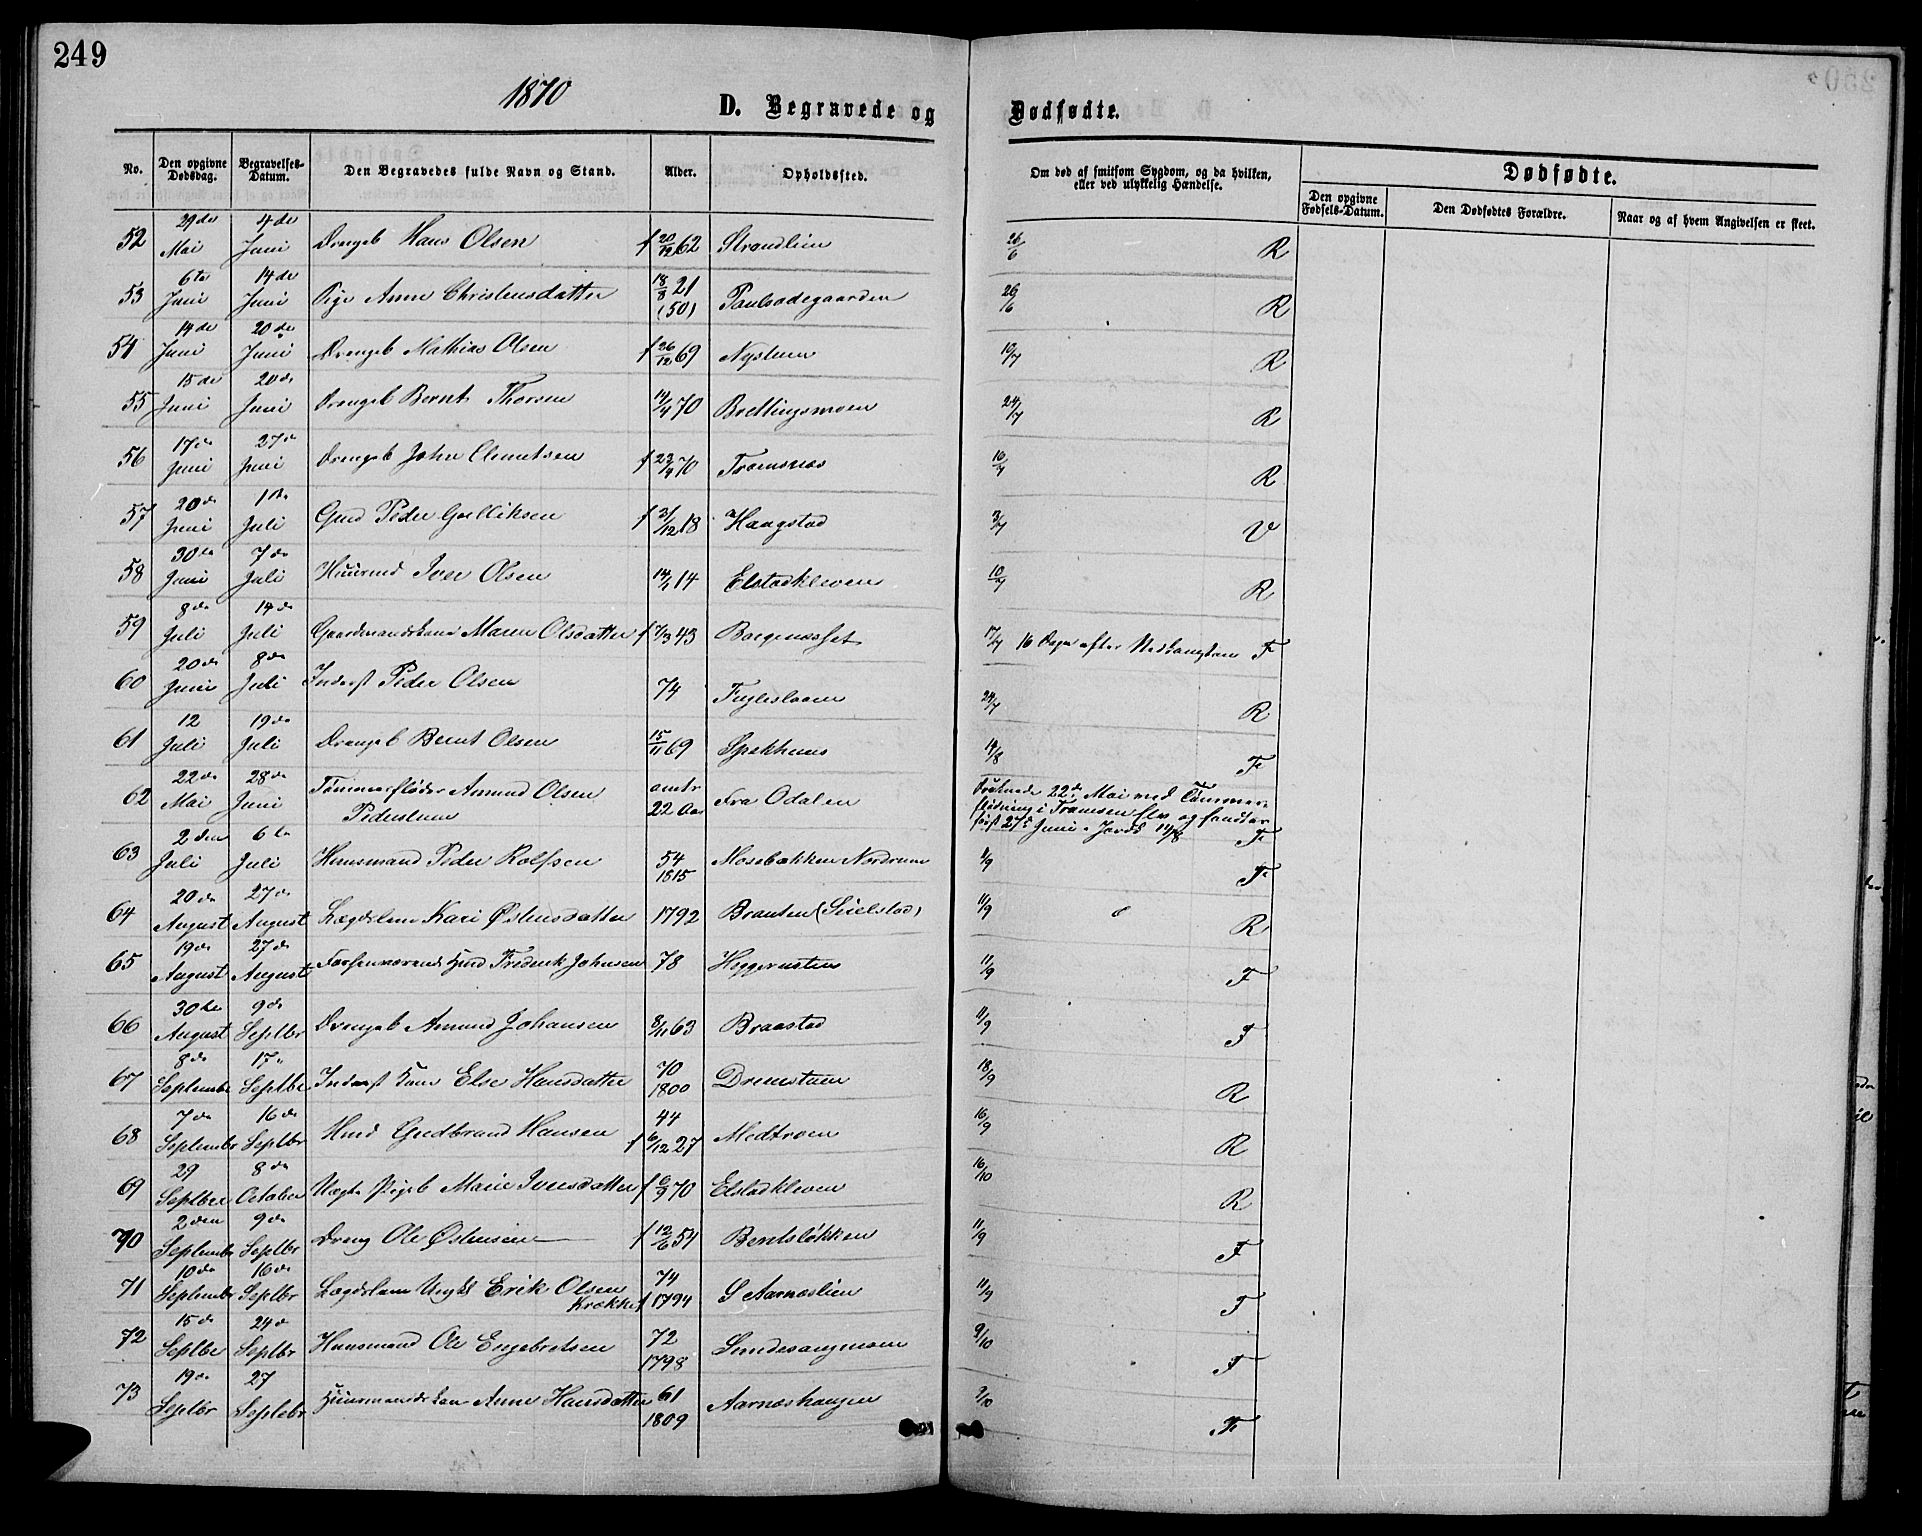 249
1870
D. Begravede og Dødfødte.
No. Den opgivne Dødsdag. Begravelses-Datum. Den Begravedes fulde Navn og Stand. Alder. Opholdssted. Om død af smitsom Sygdom, og da hvilken, eller ved ulykkelig Hændelse. Dødfødte.
Den opgivne Fødsels-Datum. Den Dødfødtes Forældre. Naar og af hvem Angivelsen er skeet.
52 29de Mai 4de Juni Drengeb Hans Olsen f 20/12 62 Strandlien 26/6 R
53 6te Juni 14de Juni Pige Anne Christensdatter 18/8 21 (50) Paulsødegaarden 26/6 R
54 14de Juni 20de Juni Drengeb Mathias Olsen f 26/12 69 Nystuen 10/7 R
55 15de Juni 20de Juni Drengeb Bernt Thorsen 14/4 70 Brettingsmoen 24/7 R
56 17de Juni 27de Juni Drengeb John Clemetsen f 23/4 70 Tromsnæs 10/7 R
57 20de Juni 1ste Juli Gmd Peder Gulliksen f 31/12 18 Haugstad 3/7 V
58 30te Juni 7de Juli Huusmd Iver Olsen 14/1 14 Elstadkleven 10/7 R
59 8de Juli 14de Juli Gaardmandskone Maren Olsdatter f 7/3 43 17/7 16 Dage efter F
60 20de Juni 8de Juli Inderst Peder Olsen 74 24/7 R
61 12 Juli 19de Juli Drengeb Bernt Olsen 15/11 69 Spekhuus 14/8 F
62 22de Mai 28de Juni Tømmerfløder Amund Olsen omtr 22 Aar Fra Odalen Druknede 22de Mai ved Tømmerflødning i Tromsen Elv og fandtes først 27de Juni. Jordf 14/8 F
63 2den Juli 6te Juli Huusmand Peder Rolfsen 54 1815 Mosebækken Nordrum 4/9 F
64 20de August 27de August Lægdslem Kari Østensdatter 1792 Brauten (Seielstad) 11/9 R
65 19de August 27de August Forhenværende Hmd Frederik Johnsen 78 Heggerusten 11/9 F
66 30te August 9de Septbr Drengeb Amund Johansen 8/11 63 Braastad 11/9 F
67 8de Septembr 17de Septbr Inderst Kone Else Hansdatter 70 1800 18/9 R
68 7de Septembr 16de Septbr Hmd Gudbrand Hansen 44 f 6/12 27 Medtroen 16/9 R
69 29 Septbr 8de October Uægte Pigeb Marie Iversdatter f 6/9 70 Elstadkleven 16/10 R
70 2den Septembr 9de Septbr Dreng Ole Østensen f 12/6 54 Berntsløkken 11/9 F
71 10de Septembr 16de Septbr Lægdslem Ungkl Erik Olsen Krække 74 f 1794 S Aarnæslien 11/9 F
72 15de Septbr 24de Septbr Huusmand Ole Engebretsen 72 1798 9/10 F
73 19de Septbr 27 Septebr Huusmandskone Anne Hansdatter 61 1809 Aarnæshaugen 9/10 F